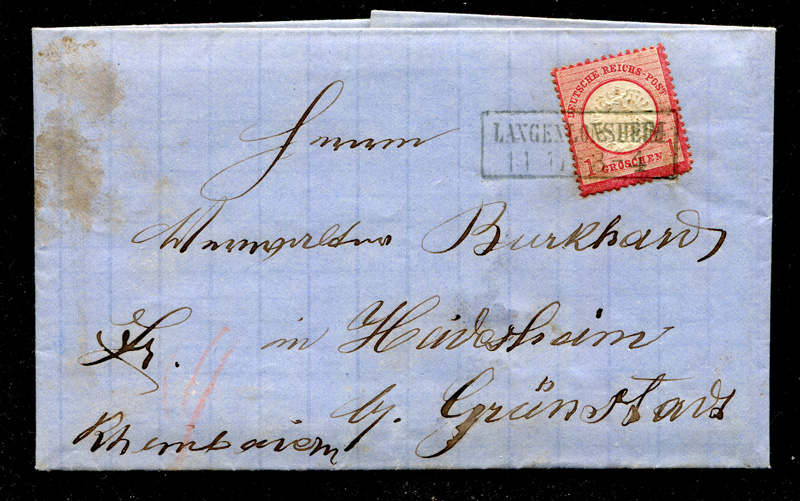 DEUTSCHE REICHS-POST
1 GROSCHEN 1
LANGENLONSHEIM
Herrn
Burkhard
Fr. in Heidesheim
b. Grünstadt
Rheinbaiern